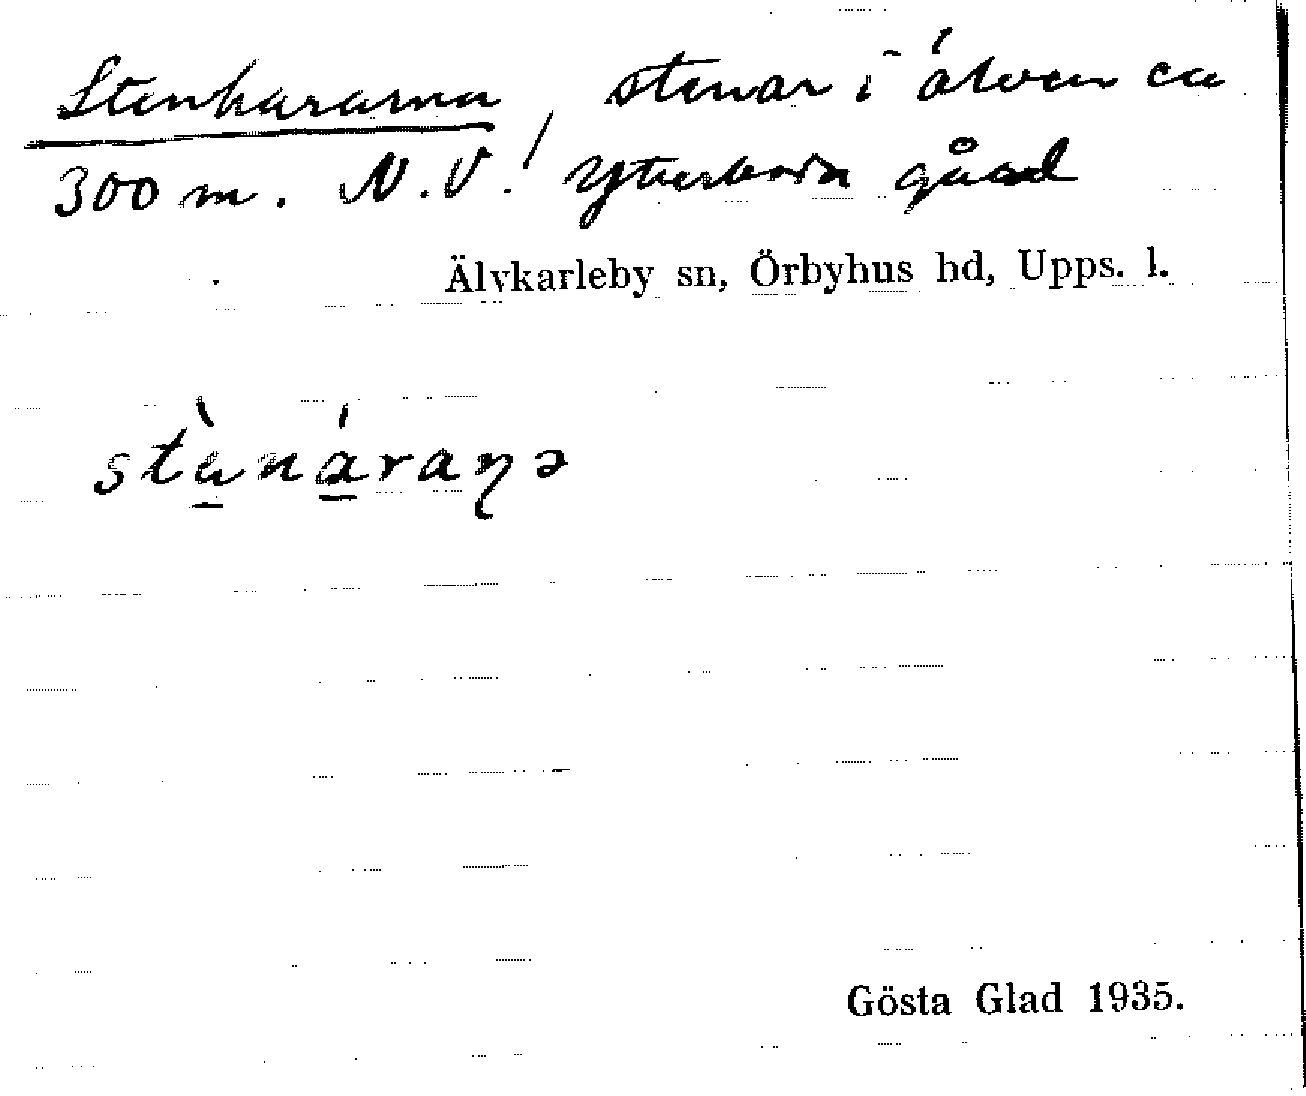 Stenhararna, stenar i älven ca
300 m. N.V. Ytterboda gård
Älvkarleby sn, Örbyhus hd, Upps. l.
stànáraŋə
Gösta Glad 1935.